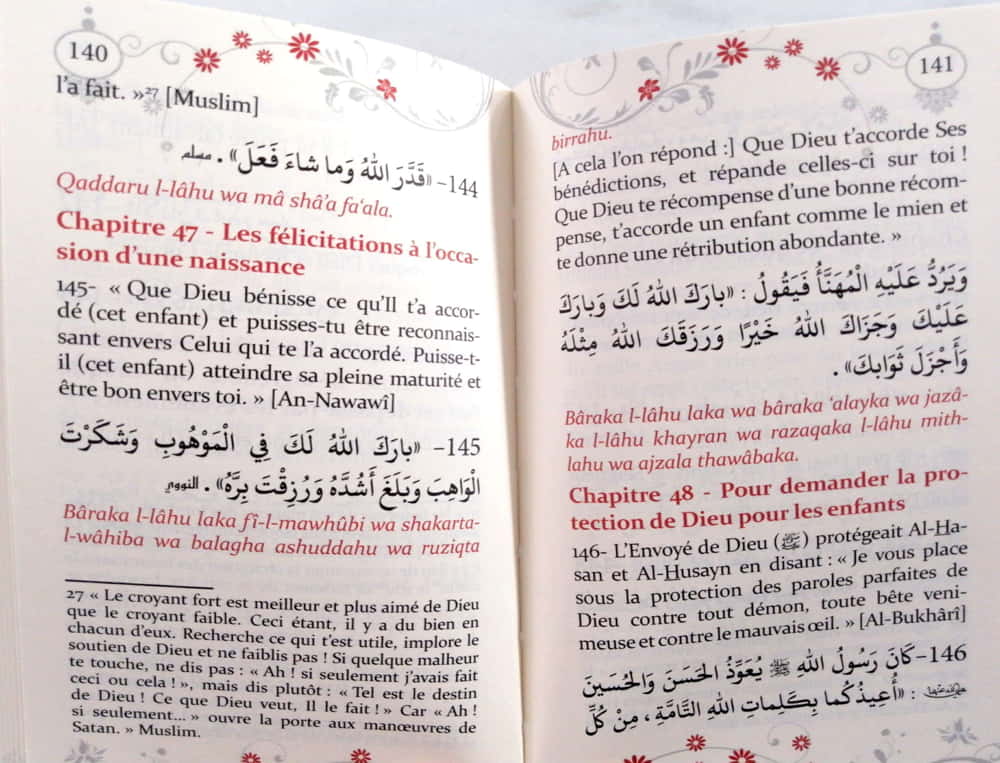 140
l'a fait. »27 [Muslim]
144- «قَدَّرَ اللهُ وَما شاءَ فَعَلَ» . مسلم
Qaddaru l-lâhu wa mâ shâ'a fa'ala.
Chapitre 47 - Les félicitations à l'occa-
sion d'une naissance
145- « Que Dieu bénisse ce qu'Il t'a accor-
dé (cet enfant) et puisses-tu être reconnais-
sant envers Celui qui te l'a accordé. Puisse-t-
il (cet enfant) atteindre sa pleine maturité et
être bon envers toi. » [An-Nawawî]
145- «بارَكَ اللهُ لَكَ فِي الْمَوْهُوبِ وَشَكَرْتَ
الْواهِبَ وَبَلَغَ أَشُدَّهُ وَرُزِقْتَ بِرَّهُ» . النووي
Bâraka l-lâhu laka fî-l-mawhûbi wa shakarta-
l-wâhiba wa balagha ashuddahu wa ruziqta
27 « Le croyant fort est meilleur et plus aimé de Dieu
que le croyant faible. Ceci étant, il y a du bien en
chacun d'eux. Recherche ce qui t'est utile, implore le
soutien de Dieu et ne faiblis pas ! Si quelque malheur
te touche, ne dis pas : « Ah ! si seulement j'avais fait
ceci ou cela ! », mais dis plutôt : « Tel est le destin
de Dieu ! Ce que Dieu veut, Il le fait ! » Car « Ah !
si seulement... » ouvre la porte aux manœuvres de
Satan. » Muslim.
141
birrahu.
[A cela l'on répond :] Que Dieu t'accorde Ses
bénédictions, et répande celles-ci sur toi !
Que Dieu te récompense d'une bonne récom-
pense, t'accorde un enfant comme le mien et
te donne une rétribution abondante. »
وَيَرُدُّ عَلَيْهِ الْمُهَنَّأُ فَيَقُولُ : «بارَكَ اللهُ لَكَ وَبارَكَ
عَلَيْكَ وَجَزَاكَ اللهُ خَيْرًا وَرَزَقَكَ اللهُ مِثْلَهُ
وَأَجْزَلَ ثَوَابكَ» .
Bâraka l-lâhu laka wa bâraka 'alayka wa jazâ-
ka l-lâhu khayran wa razaqaka l-lâhu mith-
lahu wa ajzala thawâbaka.
Chapitre 48 - Pour demander la pro-
tection de Dieu pour les enfants
146- L'Envoyé de Dieu (ﷺ) protégeait Al-Ha-
san et Al-Husayn en disant : « Je vous place
sous la protection des paroles parfaites de
Dieu contre tout démon, toute bête veni-
meuse et contre le mauvais œil. » [Al-Bukhârî]
146- كَانَ رَسُولُ اللهِ ﷺ يُعَوِّذُ الحَسَنَ وَالحُسَيْنَ
: «أُعِيذُكُما بِكَلِماتِ اللهِ التَّامَّةِ ، مِنْ كُلِّ